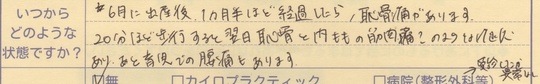 いつから
どのような
状態ですか？
*6月に出産後、1ヶ月半ほど経過したら、恥骨痛があります。
20分ほど歩行すると翌日恥骨と内ももの筋肉痛？のような
あり。あと育児での腰痛もあります。
無 □カイロプラクティック □病院(整形外科等)